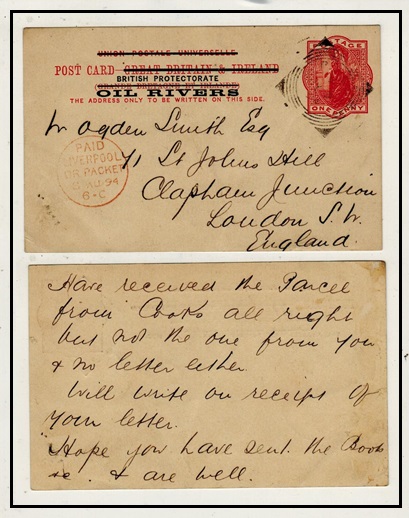 UNION POSTALE UNIVERSELLE
POST CARD GREAT BRITAIN & IRELAND
BRITISH PROTECTORATE
(GRANDE BRETAGNE ET IRLANDE)
OIL RIVERS
THE ADDRESS ONLY TO BE WRITTEN ON THIS SIDE.
POSTAGE
ONE PENNY
W Ogden Smith Esq
71 St Johns Hill
Clapham Junction
London S.W.
England.
PAID
LIVERPOOL
BR PACKET
AU 94
6-C
Have received the Parcel
from Cooks all right
but not the one from you
& no letter either.
Will write on receipt of
your letter.
Hope you have sent the Books
& are well.